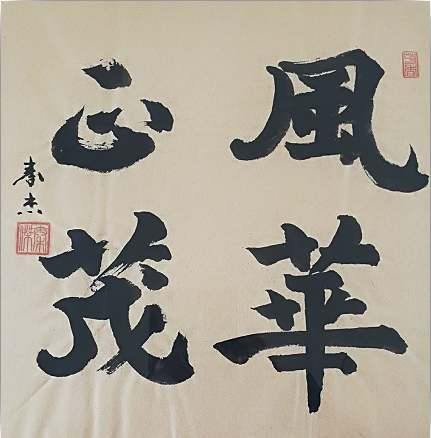 風華
正茂
秦杰